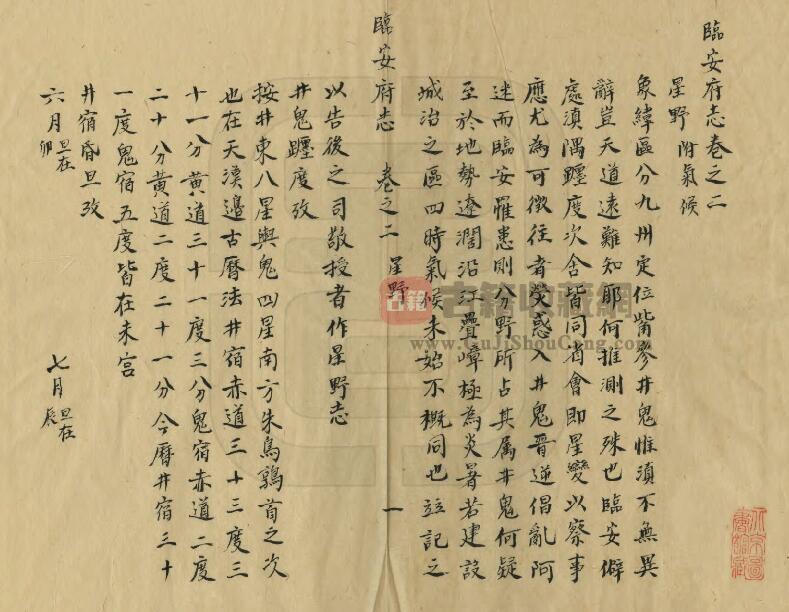 臨安府志卷之二
星野 附氣候
象緯區分九州定位觜參井鬼惟滇不無異
辭豈天道遠難知耶何推測之殊也臨安僻
處滇隅躔度次舍皆同省會即星變以察事
應尤為可徵往者熒惑入井鬼晋逆倡亂阿
迷而臨安罹患則分野所占其属井鬼何疑
至於地勢遼濶沿江疊嶂極為炎署若建設
城治之區四時氣候未始不概同也竝記之
臨安府志 卷之二 星野 一
以告後之司敬授者作星野志
井鬼躔度攷
按井東八星輿鬼四星南方朱鳥鶉首之次
也在天漢邊古曆法井宿赤道三十三度三
十一分黄道三十一度三分鬼宿赤道二度
二十分黄道二度二十一分今曆井宿三十
一度鬼宿五度皆在未宫
井宿昏旦攷
六月旦在卯 七月旦在辰
古籍
古籍收藏網
www.GuJiShouCang.com